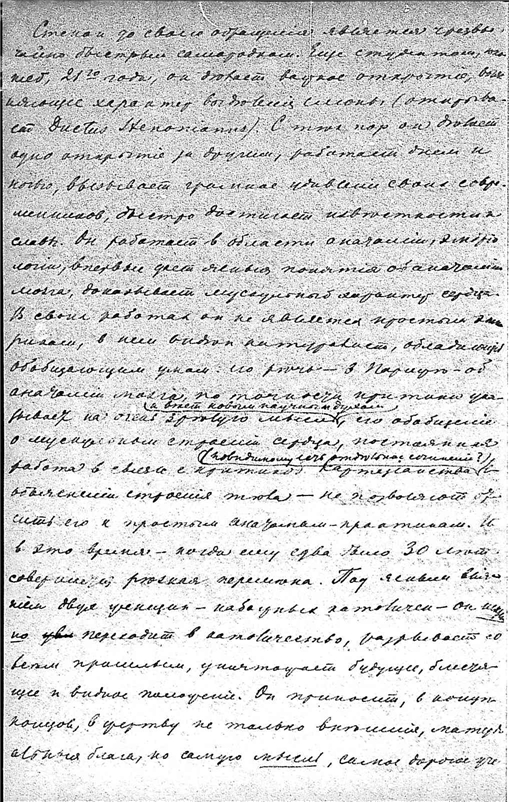 Стенон до своего обращения является чрезвы-
чайно быстрым самородком. Еще студентом, юно-
шей, 21го года, он делает важное открытие, выяс-
няющее характер выделения слюны (открыва-
ет Ductus Stenonianus). С тех пор он делает
одно открытие за другим, работает днем и
ночью, вызывает громкое удивление своих совре-
менников, быстро достигает известности и
славы. Он работает в области анатомии, эмбрио-
логии, впервые дает ясныя понятія об анатоміи
мозга, доказывает мускульный характер сердца.
В своих работах он не является простым
в нем виден натуралист, обладающій
обобщающим умом: его речь – в Париже – об
анатоміи мозга, по точности критики ука-
зывает на очень зрелую мысль
а веет новым научным духом
его обобщение
о мускульном строении сердца, постоянная
работа в связи с критикой картезианства
(повидимому есть отдельное сочинение?)
объяснении строения тела – не позволяют от-
нести его к простым анатомам-практикам. И
в это время – когда ему едва было 30 лет
совершается резкая перемена. Под ясным влия-
нием двух женщин – набожных католичек – он
переходит в католичество, разрывает со
всем прошлым, уничтожает будущее, блестя-
щее и видное положение. Он приносит, в конце
концов, в жертву не только внешния, матері-
альныя блага, но самую мысль, самое дорогое